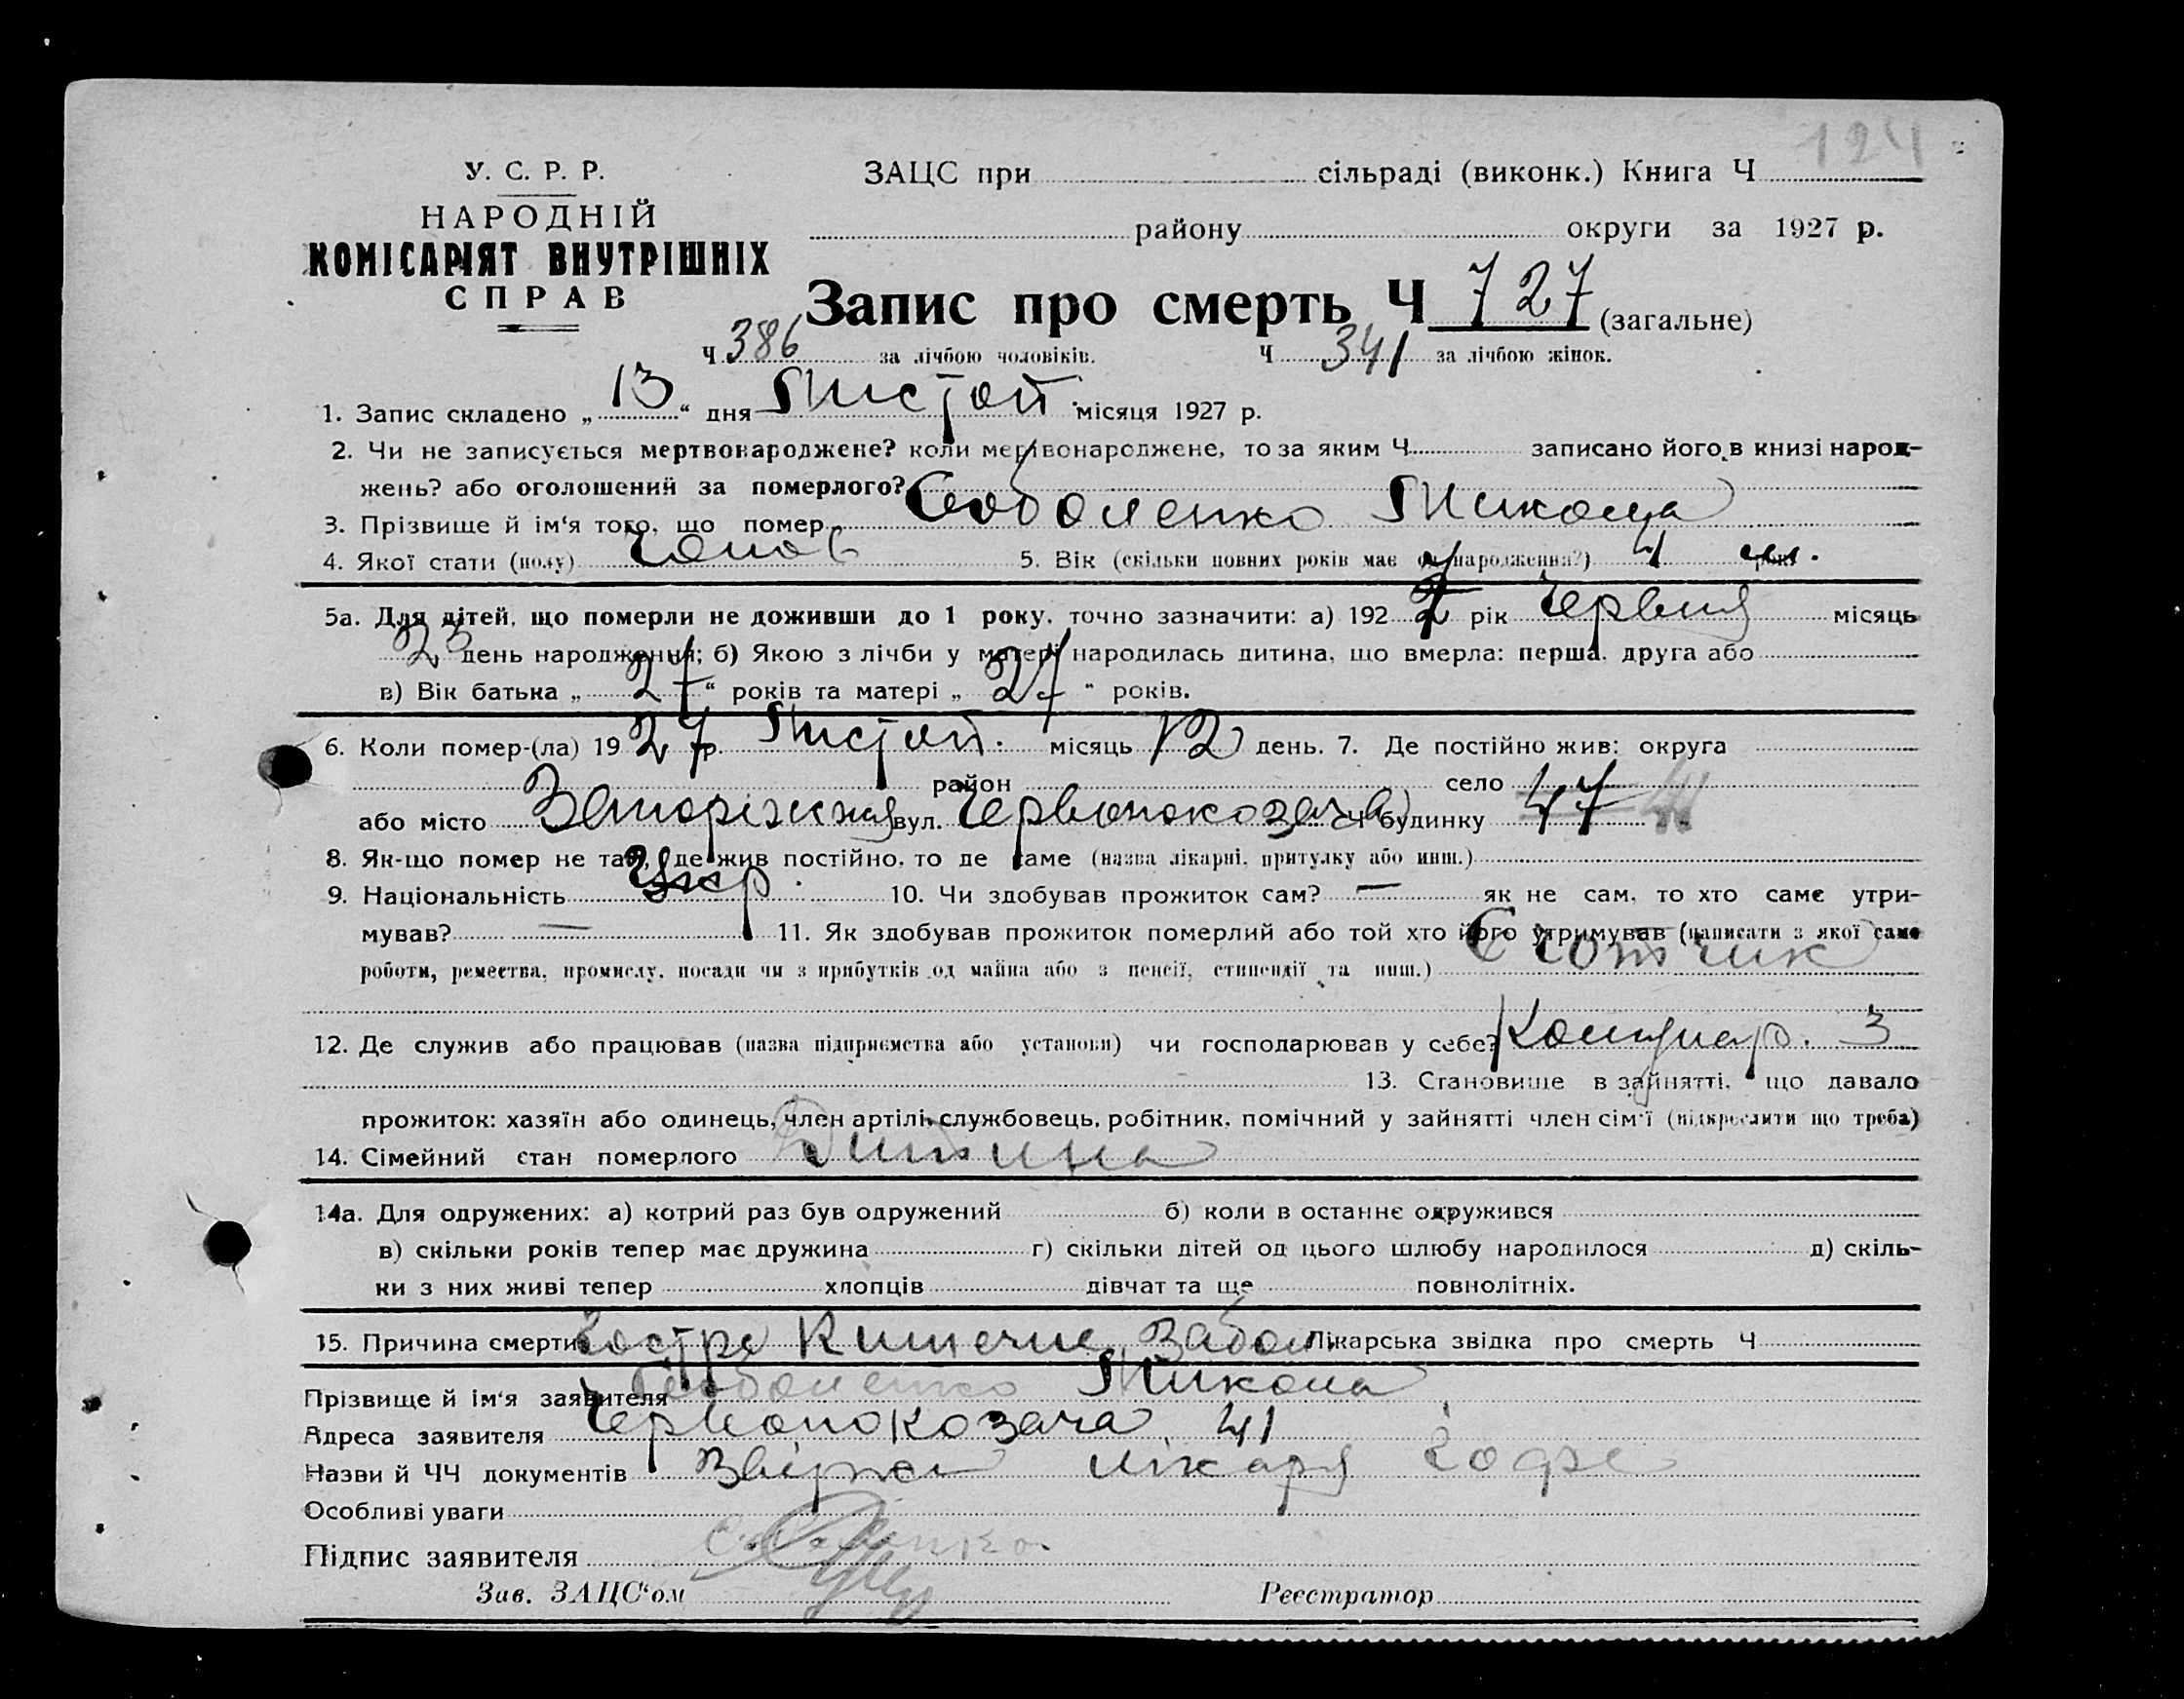 124
У. С. Р. Р.
НАРОДНІЙ
КОМІСАРІЯТ ВНУТРІШНІХ
СПРАВ
ЗАЦС при сільраді (виконк.) Книга Ч
району округи за 1927 р.
Запис про смерть Ч 727 (загальне)
Ч 386 за лічбою чоловіків. Ч 341 за лічбою жінок.
1. Запис складено „ 13 “ дня Листоп. місяця 1927 р.
2. Чи не записується мертвонароджене? коли мертвонароджене, то за яким Ч записано його в книзі народ-
жень? або оголошений за померлого?
3. Прізвище й ім‘я того, що помер Соболенко Микола
4. Якої стати (полу) Чолов 5. Вік (скільки повних років має од народження?) 4 м.
5а. Для дітей, що померли не доживши до 1 року, точно зазначити: а) 192 7 рік Червня місяць
23 день народження; б) Якою з лічби у матері народилась дитина, що вмерла: перша, друга або
в) Вік батька „ 27 “ років та матері „ 27 “ років.
6. Коли помер-(ла) 19 27 р. Листоп. місяць 12 день. 7. Де постійно жив: округа
район село
або місто Запоріжжя вул. Червонокозача Ч будинку 47 41
8. Як-що помер не там, де жив постійно, то де саме (назва лікарні, притулку або инш.)
9. Національність Укр. 10. Чи здобував прожиток сам? — як не сам, то хто саме утри-
мував? — 11. Як здобував прожиток померлий або той хто його утримував (написати з якої саме
роботи, ремества, промислу, посади чи з прибутків од майна або з пенсії, стипендії та инш.) Счотчик
12. Де служив або працював (назва підприємства або установи) чи господарював у себе? Комунар. З
13. Становище в зайнятті, що давало
прожиток: хазяїн або одинець, член артілі, службовець, робітник, помічний у зайнятті член сім‘ї (підкреслити що треба)
14. Сімейний стан померлого Дитина
14а. Для одружених: а) котрий раз був одружений б) коли в останнє одружився
в) скільки років тепер має дружина г) скільки дітей од цього шлюбу народилося д) скіль-
ки з них живі тепер хлопців дівчат та ще повнолітніх.
15. Причина смерти Гостре Кишечне Забол. Лікарська звідка про смерть Ч
Прізвище й ім‘я заявителя Соболенко Микола
Адреса заявителя Червонокозача 41
Назви й ЧЧ документів лікаря
Особливі уваги
Підпис заявителя
Зав. ЗАЦС‘ом Реєстратор